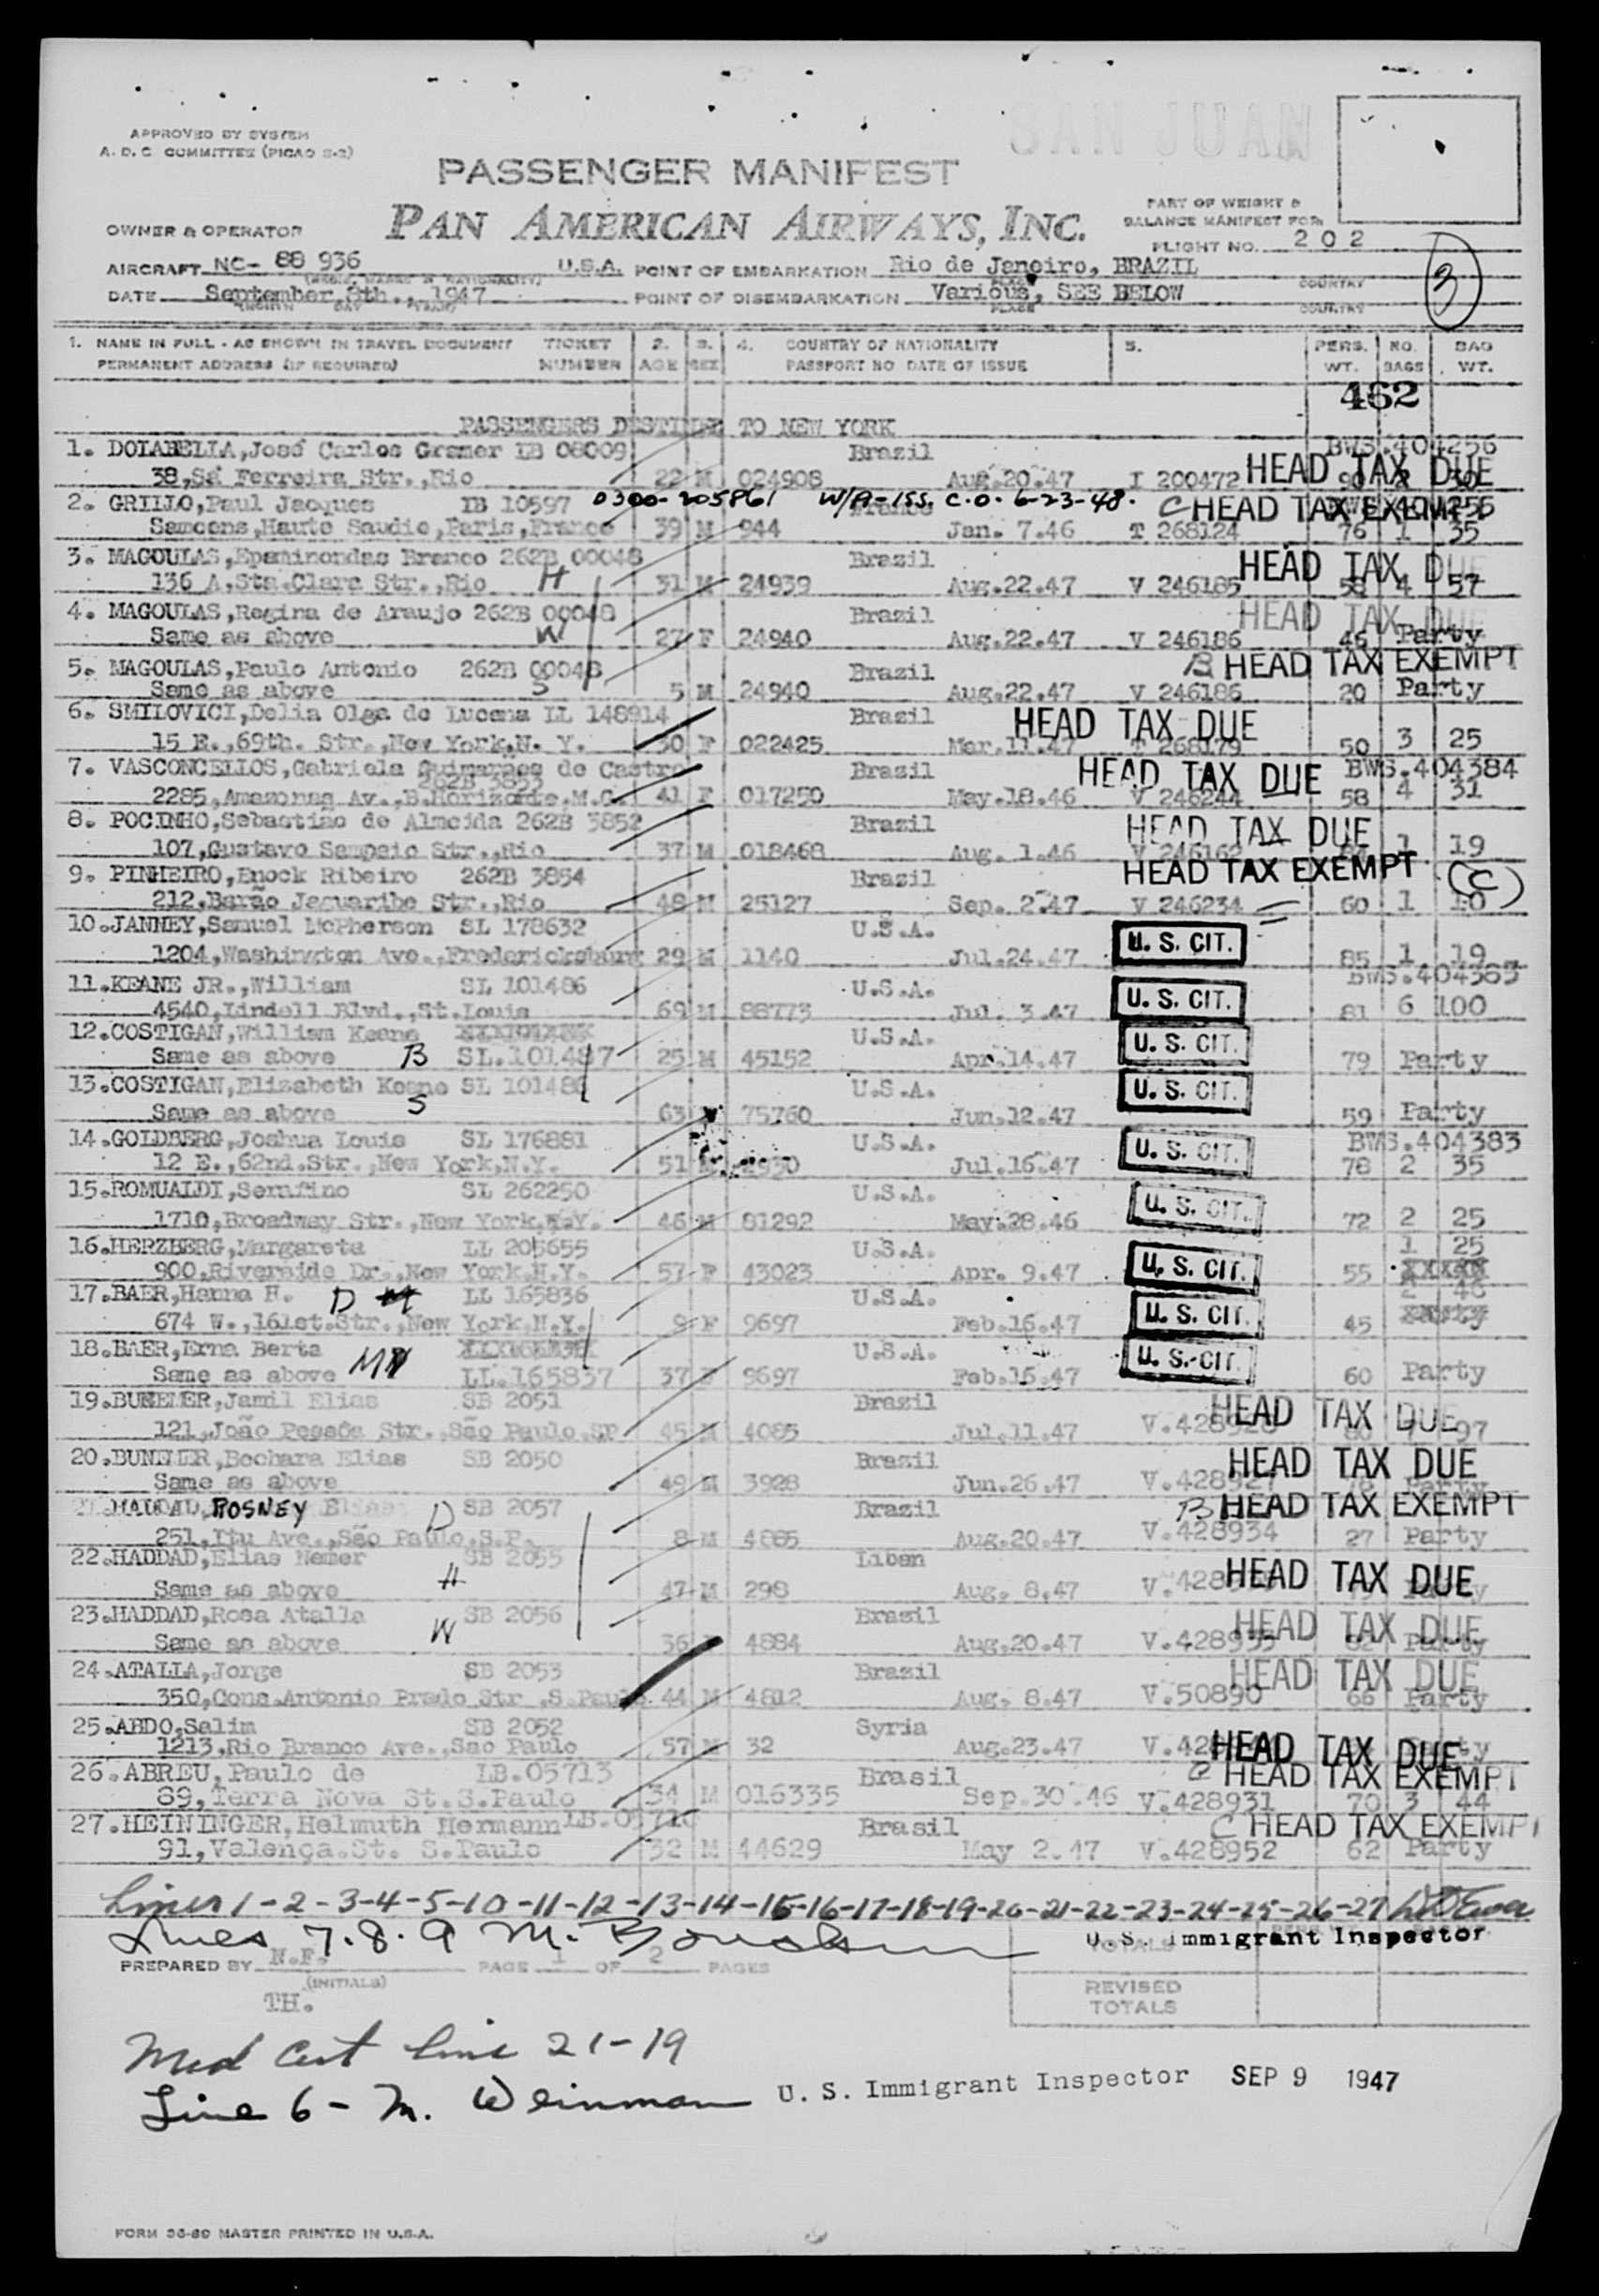 SAN JUAN
APPROVED BY SYSTEM
A. D. C. COMMITTEE (PICAO S-2)
PASSENGER MANIFEST
PART OF WEIGHT &
BALANCE MANIFEST FOR
OWNER & OPERATOR PAN AMERICAN AIRWAYS, INC.
FLIGHT NO. 202
AIRCRAFT NC- 88 936 U.S.A. POINT OF EMBARKATION Rio de Janeiro, BRAZIL COUNTRY
3
DATE September 8th., 1947 POINT OF DISEMBARKATION Various, SEE BELOW COUNTRY
PLACE
1. NAME IN FULL - AS SHOWN IN TRAVEL DOCUMENT TICKET 2. 3. 4. COUNTRY OF NATIONALITY 5. PERS. NO. BAG
PERMANENT ADDRESS (IF REQUIRED) NUMBER AGE SEX PASSPORT NO DATE OF ISSUE WT. BAGS WT.
462
PASSENGERS DESTINED TO NEW YORK
1. DOLABELLA,José Carlos Gramer LB 08009 Brazil BWS.404256
38,Sá Ferreira Str.,Rio 22 M 024908 Aug.20.47 I 200472 HEAD TAX DUE
2. GRILLO,Paul Jacques LB 10597 0300-205861 W/A-ISS. C.O. 6-23-48. France C HEAD TAX EXEMPT
Samoens,Haute Saudie,Paris,France 39 M 944 Jan. 7.46 T 268124 76 1 35
3. MAGOULAS,Epaminondas Branco 262B 00048 Brazil HEAD TAX DUE
136 A,Sta.Clara Str.,Rio H 31 M 24939 Aug.22.47 V 246185 58 4 57
4. MAGOULAS,Regina de Araujo 262B 00048 Brazil HEAD TAX DUE
Same as above W 27 F 24940 Aug.22.47 V 246186 46 Party
5. MAGOULAS,Paulo Antonio 262B 00048 Brazil B HEAD TAX EXEMPT
Same as above S 5 M 24940 Aug.22.47 V 246186 20 Party
6. SMILOVICI,Delia Olga de Lucena LL 148914 Brazil HEAD TAX DUE
15 E.,69th. Str.,New York,N. Y. 30 F 022425 Mar.11.47 T 268179 50 3 25
7. VASCONCELLOS,Gabriela Guimarães de Castro Brazil HEAD TAX DUE BWS.404384
262B 3823
2285,Amazonas Av.,B.Horizonte.M.G. 41 F 017250 May.18.46 V 246244 58 4 31
8. POCINHO,Sebastião de Almeida 262B 3852 Brazil HEAD TAX DUE
107,Gustavo Sampaio Str.,Rio 37 M 018468 Aug. 1.46 V 246162 1 19
9. PINHEIRO,Enock Ribeiro 262B 3854 Brazil HEAD TAX EXEMPT (C)
212,Barão Jaguaribe Str.,Rio 48 M 25127 Sep. 2.47 V 246234 60 1 10
10.JANNEY,Samuel McPherson SL 178632 U.S.A. U. S. CIT.
1204,Washington Ave.,Fredericksburg 29 M 1140 Jul.24.47 85 1 19
11.KEANE JR.,William SL 101486 U.S.A. U. S. CIT. BWS.404385
4540,Lindell Blvd.,St.Louis 69 M 88773 Jul. 3.47 81 6 100
12.COSTIGAN,William Keane U.S.A. U. S. CIT.
Same as above B SL.101487 25 M 45152 Apr.14.47 79 Party
13.COSTIGAN,Elizabeth Keane SL 101486 U.S.A. U. S. CIT.
Same as above S 63 75760 Jun.12.47 59 Party
14.GOLDBERG,Joshua Louis SL 176881 U.S.A. U. S. CIT. BWS.404383
12 E.,62nd.Str.,New York,N.Y. 51 2930 Jul.16.47 78 2 35
15.ROMUALDI,Serafino SL 262250 U.S.A. U. S. CIT.
1710,Broadway Str.,New York,N.Y. 46 M 81292 May.28.46 72 2 25
16.HERZBERG,Margareta LL 205655 U.S.A. U. S. CIT. 1 25
900,Riverside Dr.,New York.N.Y. 57 F 43023 Apr. 9.47 55
17.BAER,Hanna H. D LL 165836 U.S.A. U. S. CIT. 2 48
674 W.,161st.Str.,New York,N.Y. 9 F 9697 Feb.16.47 45
18.BAER,Erna Berta U.S.A. U. S. CIT.
Same as above M LL.165837 37 F 9697 Feb.16.47 60 Party
19.BUNEMER,Jamil Elias SB 2051 Brazil HEAD TAX DUE
121,João Pessôa Str.,São Paulo,SP 45 M 4085 Jul.11.47 V.428928 80 7 97
20.BUNEMER,Bechara Elias SB 2050 Brazil HEAD TAX DUE
Same as above 49 M 3928 Jun.26.47 V.428927 Party
21.HADDAD,ROSNEY Elias D SB 2057 Brazil B HEAD TAX EXEMPT
251,Itu Ave.,São Paulo,S.P. 8 M 4885 Aug.20.47 V.428934 27 Party
22.HADDAD,Elias Nemer SB 2055 Liban HEAD TAX DUE
Same as above H 47 M 298 Aug. 8.47 Party
23.HADDAD,Rosa Atalla SB 2056 Brasil HEAD TAX DUE
Same as above W 36 4884 Aug.20.47 V.428935 Party
24.ATALLA,Jorge SB 2053 Brazil HEAD TAX DUE
350,Cons.Antonio Prado Str.,S.Paulo 44 M 4812 Aug. 8.47 V.50890 66 Party
25.ABDO,Salim SB 2052 Syria
1213,Rio Branco Ave.,Sao Paulo 57 M 32 Aug.23.47 HEAD TAX DUE Party
26.ABREU,Paulo de LB.05713 Brasil C HEAD TAX EXEMPT
89,Terra Nova St.S.Paulo 34 M 016335 Sep.30.46 V.428931 70 3 44
27.HEININGER,Helmuth Hermann LB.05716 Brasil C HEAD TAX EXEMPT
91,Valença.St. S.Paulo 32 M 44629 May 2.47 V.428952 62 Party
Lines 1-2-3-4-5-10-11-12-13-14-15-16-17-18-19-20-21-22-23-24-25-26-27
Lines 7.8.9 M.
U.S. Immigrant Inspector
TOTALS
PREPARED BY N.F. PAGE 1 OF 2 PAGES
(INITIALS)
TH.
REVISED
TOTALS
Med Cert line 21-19
Line 6 - M. Weinman U. S. Immigrant Inspector SEP 9 1947
FORM 36-80 MASTER PRINTED IN U.S.A.